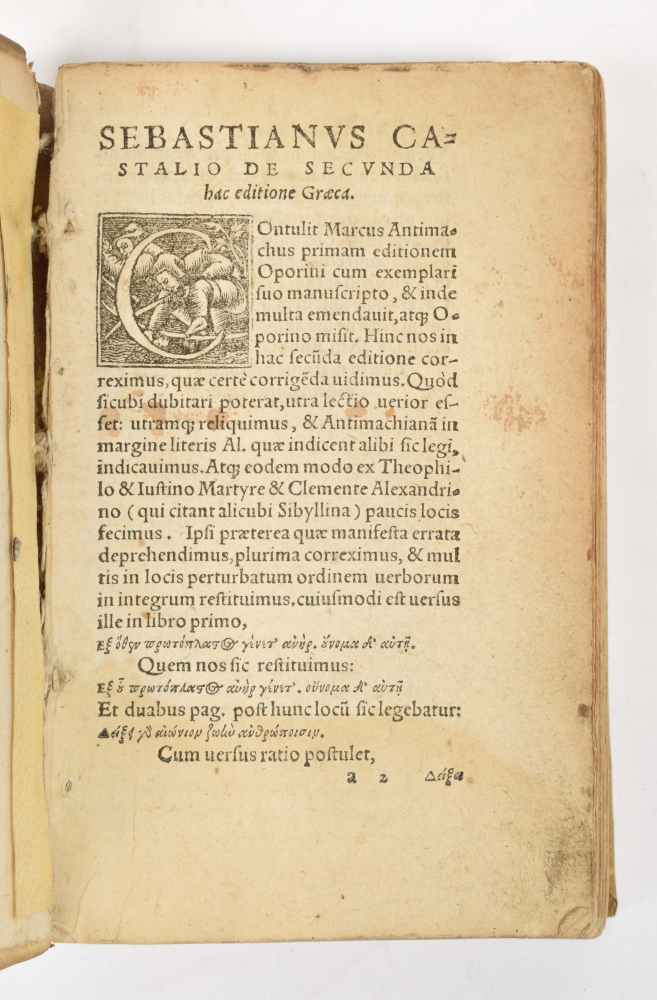 SEBASTIANVS CA=
STALIO DE SECVNDA
hac editione Græca.
COntulit Marcus Antima-
chus primam editionem
Oporini cum exemplari
suo manuscripto, & inde
multa emendauit, atq; O-
porino misit. Hinc nos in
hac secūda editione cor-
reximus, quæ certè corrigēda uidimus. Quòd
sicubi dubitari poterat, utra lectio uerior es-
set: utramq; reliquimus, & Antimachianā in
margine literis Al. quæ indicent alibi sic legi,
indicauimus. Atq; eodem modo ex Theophi-
lo & Iustino Martyre & Clemente Alexandri-
no (qui citant alicubi Sibyllina) paucis locis
fecimus. Ipsi præterea quæ manifesta errata
deprehendimus, plurima correximus, & mul
tis in locis perturbatum ordinem uerborum
in integrum restituimus. cuiusmodi est uersus
ille in libro primo,
Εξ ὅθεν πρωτόπλαστος γένετ' ἀνήρ. ὄνομα δ' αὐτῇ.
Quem nos sic restituimus:
Εξ οὗ πρωτόπλαστος ἀνὴρ γένετ'. οὔνομα δ' αὐτῇ
Et duabus pag. post hunc locū sic legebatur:
Δείξει γὰ αἰώνιον ζωὴν ἀνθρώποισιν.
Cum uersus ratio postulet,
a 2 Δείξει